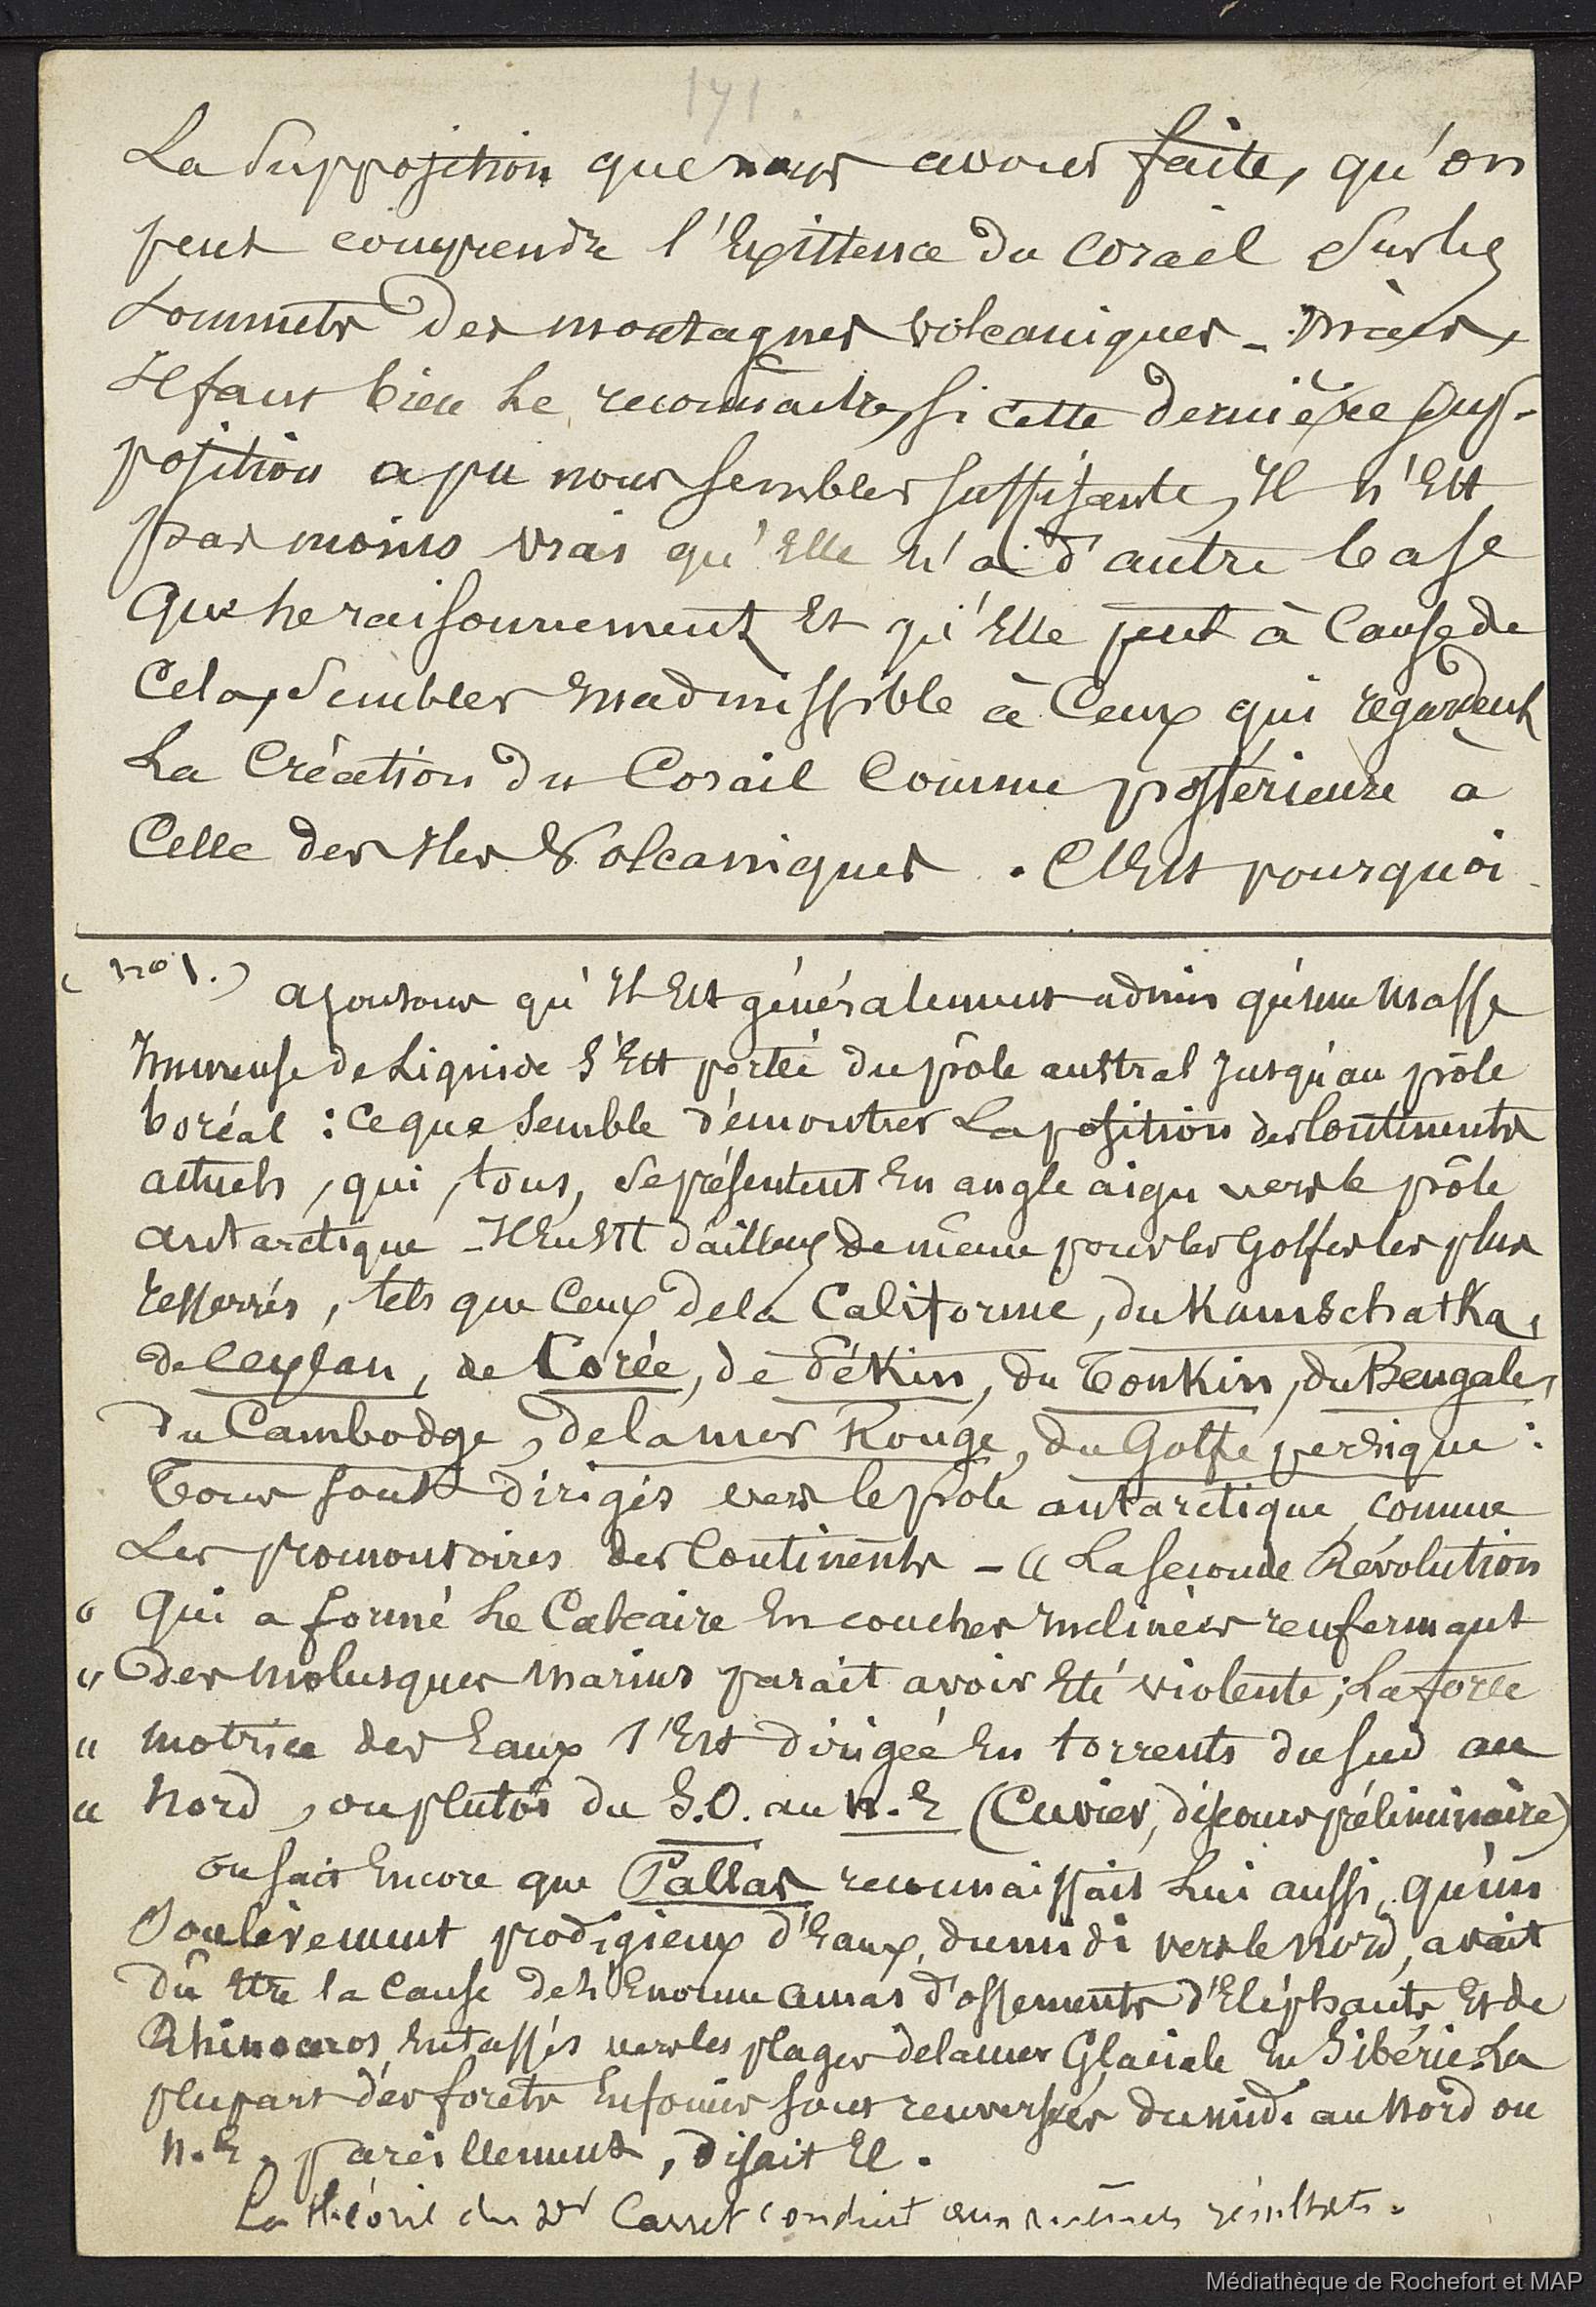 171.
La supposition que nous avons faite, qu'on
peut comprendre l'Existence du Corail sur les
sommets des montagnes volcaniques - mais,
Il faut bien le reconnaitre, si cette dernière sup-
position a pu nous sembler suffisante, Il n'Est
pas moins vrai qu'Elle n'a d'autre base
Que le raisonnement Et qu'Elle peut à Cause de
Cela, sembler Inadmissible à Ceux qui regardent
La Création du Corail Comme postérieure à
Celle des Iles Volcaniques. C'Est pourquoi
(no 1.) ajoutons qu'Il Est généralement admis qu'une Masse
Immense de Liquide s'Est portée du pôle austral Jusqu'au pôle
boréal : ce que semble démontrer La position des Continents
actuels, qui, tous, se présentent En angle aigu vers le pôle
antarctique - Il En Est d'ailleurs de même pour les Golfes les plus
resserrés, tels que Ceux de la Californie, du Kamschatka,
de Ceylan, de Corée, de Pékin, du Tonkin, du Bengale,
du Cambodge, de la mer Rouge, du Golfe persique :
Tous sont dirigés vers le pôle antarctique, comme
Les promontoires des Continents - « La seconde Révolution
« Qui a formé Le Calcaire En couches Inclinées renfermant
« des molusques Marins parait avoir Eté violente ; La force
« motrice des Eaux s'Est dirigée En torrents du sud au
« Nord, ou plutôt du S.O. au N.E (Cuvier, discours préliminaire)
on sait Encore que Pallas reconnaissait Lui aussi, qu'un
Soulèvement prodigieux d'Eaux, du midi vers le Nord, avait
dû Etre la Cause de l'Enorme amas d'ossements d'Eléphants Et de
Rhinoceros Entassés vers les plages de la mer Glaciale En Sibérie. La
plupart des forêts Enfouies sont renversées du midi au Nord ou
N.E. pareillement, disait Il.
La théorie du Dr Carret conduit aux mêmes résultats.
Médiathèque de Rochefort et MAP